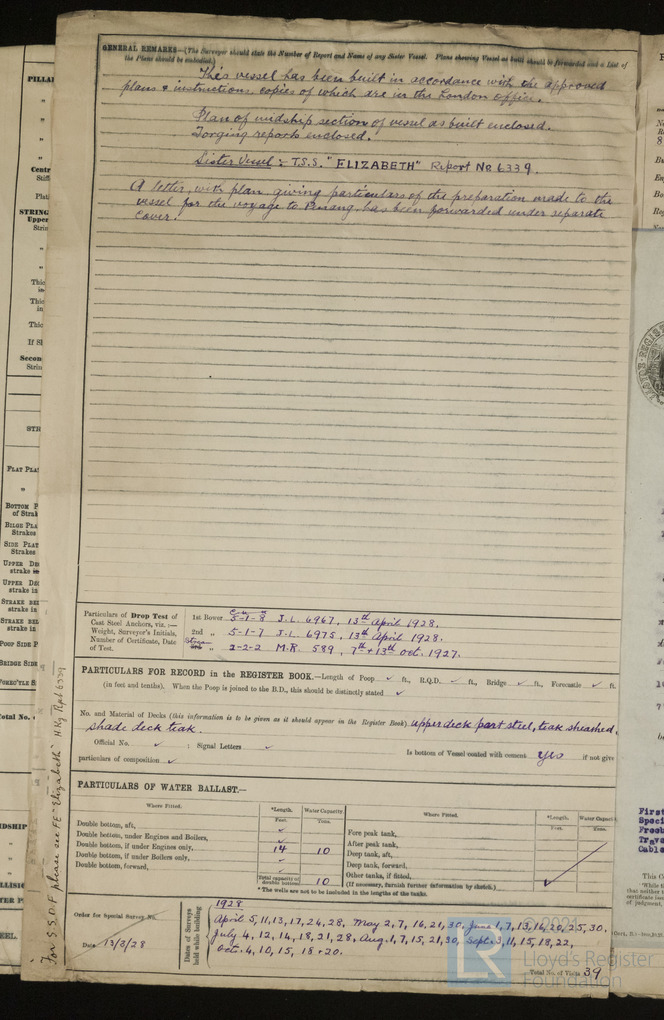 GENERAL REMARKS—(The Surveyor should state the Number of Report and Name of any Sister Vessel. Plans showing Vessel as built should be forwarded and a List of
the Plans should be embodied.)
This vessel has been built in accordance with the approved
plans & instructions copies of which are in the London office.
Plan of midship section of vessel as built enclosed.
Forging reports enclosed.
Sister Vessel :- T.S.S. "ELIZABETH" Report No 6339.
A letter, with plan giving particulars of the preparation made to the
vessel for the voyage to Penang, has been forwarded under separate
cover.
Particulars of Drop Test of
Cast Steel Anchors, viz. :—
Weight, Surveyor's Initials,
Number of Certificate, Date
of Test.
1st Bower 5-1-8 J.L. 6967, 13th April 1928.
2nd „ 5-1-7 J.L. 6975, 13th April 1928.
Stream 2-2-2 M.R. 589, 7th & 13th Oct. 1927.
PARTICULARS FOR RECORD in the REGISTER BOOK.—Length of Poop ✓ ft., R.Q.D. ✓ ft., Bridge ✓ ft., Forecastle ✓ ft.
(in feet and tenths). When the Poop is joined to the B.D., this should be distinctly stated ✓
No. and Material of Decks (this information is to be given as it should appear in the Register Book) upper deck part steel, teak sheathed.
shade deck teak.
Official No. ✓ ; Signal Letters ✓ Is bottom of Vessel coated with cement yes if not give
particulars of composition ✓
PARTICULARS OF WATER BALLAST.—
Where Fitted. *Length. Water Capacity. Where Fitted. *Length. Water Capacity.
Feet. Tons. Feet. Tons.
Double bottom, aft, ✓ Fore peak tank,
Double bottom, under Engines and Boilers, ✓ After peak tank,
Double bottom, if under Engines only, 14 10 Deep tank, aft,
Double bottom, if under Boilers only, ✓ Deep tank, forward,
Double bottom, forward, Other tanks, if fitted,
Total capacity of double bottom 10 (If necessary, furnish further information by sketch.)
* The wells are not to be included in the lengths of the tanks.
Order for Special Survey No.
Date 13/3/28
Dates of Surveys held while building
1928
April 5, 11, 13, 17, 24, 28, May 2, 7, 16, 21, 30, June 1, 7, 13, 16, 20, 25, 30,
July 4, 12, 14, 18, 21, 28, Aug. 1, 7, 15, 21, 30, Sept. 3, 11, 15, 18, 22,
Oct. 4, 10, 15, 18 & 20.
Total No. of Visits 39
For S.S.D.F please see F.E "Elizabeth" H.Kg Rpt 6339
© 2021
LR
Lloyd's Register
Foundation